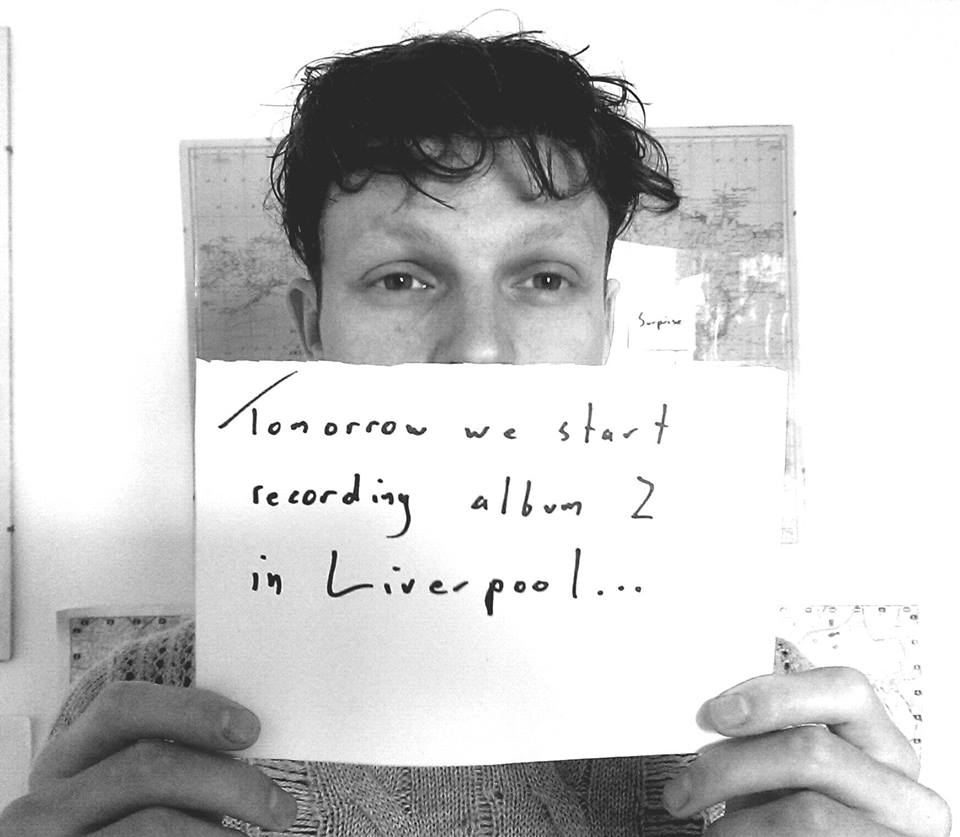 Surprise
Tomorrow we start
recording album 2
in Liverpool...